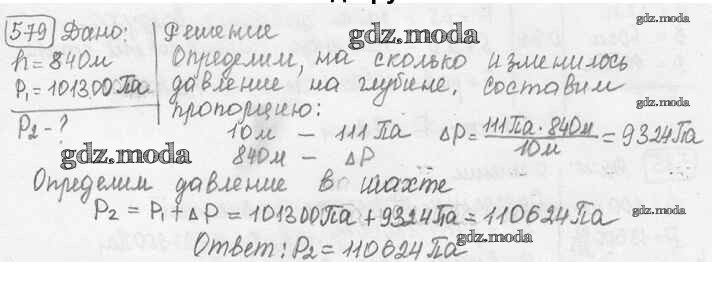 579 Дано: Решение
h = 840м Определим, на сколько изменилось
P₁ = 101300Па давление на глубине, составим
P₂ - ? пропорцию:
10м — 111Па ΔP = 111Па · 840м / 10м = 9324Па
840м — ΔP
Определим давление в шахте
P₂ = P₁ + ΔP = 101300Па + 9324Па = 110624Па
Ответ: P₂ = 110624Па
gdz.moda
gdz.moda
gdz.moda
gdz.moda
gdz.moda
gdz.moda